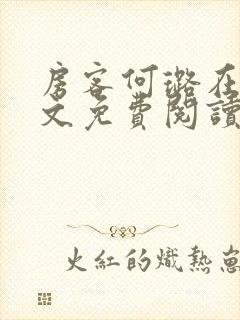 房客何璐在
文免費閱讀
火紅的熾熱